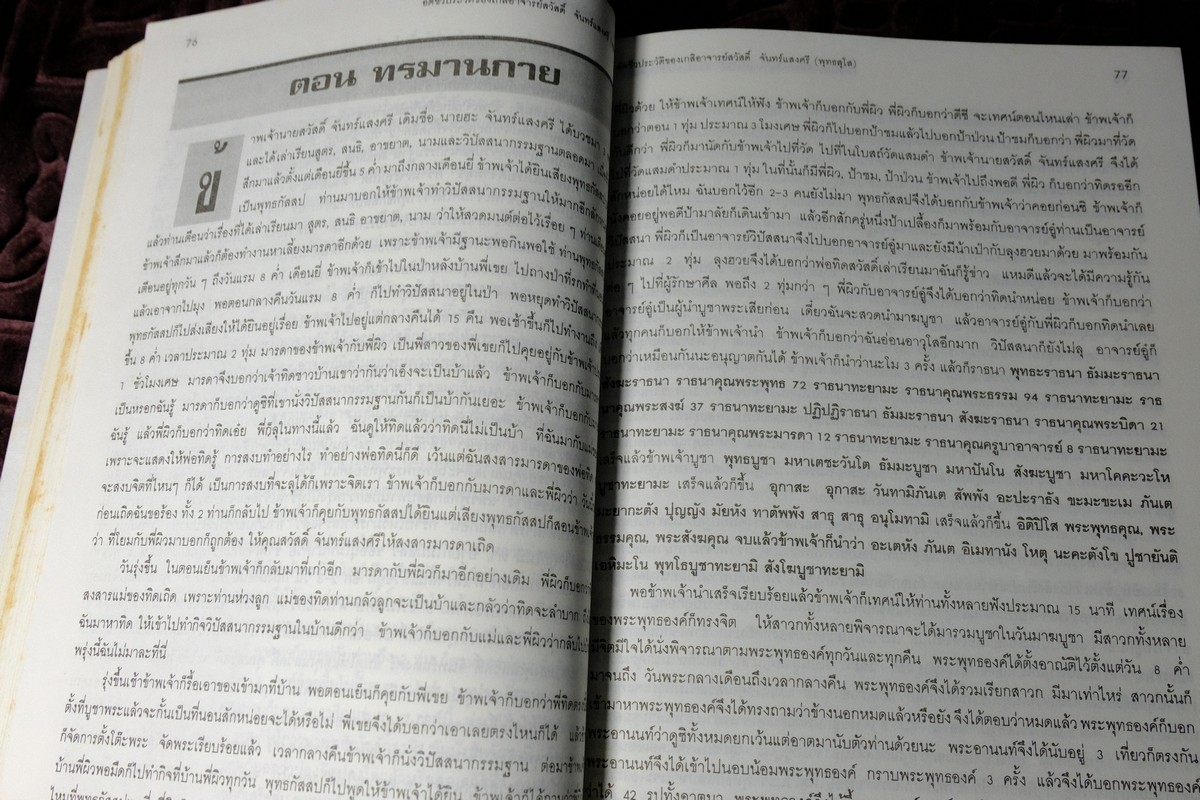 76
อัตชีวประวัติของเกสีอาจารย์สวัสดิ์ จันทร์แสงศรี
ตอน ทรมานกาย
ข้าพเจ้านายสวัสดิ์ จันทร์แสงศรี เดิมชื่อ นายฮะ จันทร์แสงศรี ได้บวชมา
และได้เล่าเรียนสูตร, สนธิ, อาขยาต, นามและวิปัสสนากรรมฐานตลอดมา
สึกมาแล้วตั้งแต่เดือนยี่ขึ้น 5 ค่ำ มาถึงกลางเดือนยี่ ข้าพเจ้าได้ยินเสียงพุทธกัสสป
เป็นพุทธกัสสป ท่านมาบอกให้ข้าพเจ้าทำวิปัสสนากรรมฐานให้มากอีกสัก
แล้วท่านเตือนว่าเรื่องที่ได้เล่าเรียนมา สูตร, สนธิ อาขยาต, นาม ว่าให้สวดมนต์ต่อไว้เรื่อย ๆ
ข้าพเจ้าสึกมาแล้วก็ต้องทำงานหาเลี้ยงมารดาอีกด้วย เพราะข้าพเจ้ามีฐานะพอกินพอใช้ ท่านพุทธกัสสป
เตือนอยู่ทุกวัน ๆ ถึงวันแรม 8 ค่ำ เดือนยี่ ข้าพเจ้าก็เข้าไปในป่าหลังบ้านพี่เขย ไปถางป่าที่รกทำที่
แล้วเอาจากไปมุง พอตอนกลางคืนวันแรม 8 ค่ำ ก็ไปทำวิปัสสนาอยู่ในป่า พอหยุดทำวิปัสสนา
พุทธกัสสปก็ไปส่งเสียงให้ได้ยินอยู่เรื่อย ข้าพเจ้าไปอยู่แต่กลางคืนได้ 15 คืน พอเช้าขึ้นก็ไปทำงาน
ขึ้น 8 ค่ำ เวลาประมาณ 2 ทุ่ม มารดาของข้าพเจ้ากับพี่ผิว เป็นพี่สาวของพี่เขยก็ไปคุยอยู่กับข้าพเจ้า
1 ชั่วโมงเศษ มารดาจึงบอกว่าเจ้าทิดชาวบ้านเขาว่ากันว่าเอ็งจะเป็นบ้าแล้ว ข้าพเจ้าก็บอกกับมารดา
เป็นหรอกฉันรู้ มารดาก็บอกว่าดูซิที่เขานั่งวิปัสสนากรรมฐานกันก็เป็นบ้ากันเยอะ ข้าพเจ้าก็บอกกับ
ฉันรู้ แล้วพี่ผิวก็บอกว่าทิดเอ๋ย พี่ก็ลุในทางนี้แล้ว ฉันดูให้ทิดแล้วว่าทิดนี่ไม่เป็นบ้า ที่ฉันมากับแม่
เพราะจะแสดงให้พ่อทิดรู้ การสงบทำอย่างไร ทำอย่างพ่อทิดนี่ก็ดี เว้นแต่ฉันสงสารมารดาของพ่อทิด
จะสงบจิตที่ไหนๆ ก็ได้ เป็นการสงบที่จะลุได้ก็เพราะจิตเรา ข้าพเจ้าก็บอกกับมารดาและพี่ผิวว่า วันนี้
ก่อนเถิดฉันขอร้อง ทั้ง 2 ท่านก็กลับไป ข้าพเจ้าก็คุยกับพุทธกัสสปได้ยินแต่เสียงพุทธกัสสปก็สอนข้าพเจ้า
ว่า ที่โยมกับพี่ผิวมาบอกก็ถูกต้อง ให้คุณสวัสดิ์ จันทร์แสงศรีให้สงสารมารดาเถิด
วันรุ่งขึ้น ในตอนเย็นข้าพเจ้าก็กลับมาที่เก่าอีก มารดากับพี่ผิวก็มาอีกอย่างเดิม พี่ผิวก็บอกว่า
สงสารแม่ของทิดเถิด เพราะท่านห่วงลูก แม่ของทิดท่านกลัวลูกจะเป็นบ้าและกลัวว่าทิดจะลำบาก
ฉันมาหาทิด ให้เข้าไปทำกิจวิปัสสนากรรมฐานในบ้านดีกว่า ข้าพเจ้าก็บอกกับแม่และพี่ผิวว่ากลับไป
พรุ่งนี้ฉันไม่มาละที่นี่
รุ่งขึ้นเช้าข้าพเจ้าก็รื้อเอาของเข้ามาที่บ้าน พอตอนเย็นก็คุยกับพี่เขย ข้าพเจ้าก็บอกว่าพี่ทิดตรง
ตั้งที่บูชาพระแล้วจะกั้นเป็นที่นอนสักหน่อยจะได้หรือไม่ พี่เขยจึงได้บอกว่าเอาเลยตรงไหนก็ได้
ก็จัดการตั้งโต๊ะพระ จัดพระเรียบร้อยแล้ว เวลากลางคืนข้าพเจ้าก็นั่งวิปัสสนากรรมฐาน ต่อมา
บ้านพี่ผิวพอมืดก็ไปทำกิจที่บ้านพี่ผิวทุกวัน พุทธกัสสปก็ไปพูดให้ข้าพเจ้าได้ยิน
อัตชีวประวัติของเกสีอาจารย์สวัสดิ์ จันทร์แสงศรี (พุทธสุโส)
77
พี่ผิวด้วย ให้ข้าพเจ้าเทศน์ให้ฟัง ข้าพเจ้าก็บอกกับพี่ผิว พี่ผิวก็บอกว่าดีซี จะเทศน์ตอนไหนเล่า ข้าพเจ้าก็
บอกว่าตอน 1 ทุ่ม ประมาณ 3 โมงเศษ พี่ผิวก็ไปบอกป้าชมแล้วไปบอกป้าป่วน ป้าชมก็บอกว่า พี่ผิวมาที่วัด
กันดีกว่า พี่ผิวก็มานัดกับข้าพเจ้าไปที่วัด ไปที่ในโบสถ์วัดแสมดำ ข้าพเจ้านายสวัสดิ์ จันทร์แสงศรี จึงได้
ไปที่วัดแสมดำประมาณ 1 ทุ่ม ในที่นั้นก็มีพี่ผิว, ป้าชม, ป้าป่วน ข้าพเจ้าไปถึงพอดี พี่ผิว ก็บอกว่าทิดรออีก
สักหน่อยได้ไหม ฉันบอกไว้อีก 2-3 คนยังไม่มา พุทธกัสสปจึงได้บอกกับข้าพเจ้าว่าคอยก่อนซิ ข้าพเจ้าก็
นั่งคอยอยู่พอดีป้ามาลัยก็เดินเข้ามา แล้วอีกสักครู่หนึ่งป้าเปลื้องก็มาพร้อมกับอาจารย์อู๋ท่านเป็นอาจารย์
วิปัสสนา พี่ผิวก็เป็นอาจารย์วิปัสสนาจึงไปบอกอาจารย์อู๋มาและยังมีน้าเป๋ากับลุงฮวยมาด้วย มาพร้อมกัน
ประมาณ 2 ทุ่ม ลุงฮวยจึงได้บอกว่าพ่อทิดสวัสดิ์เล่าเรียนมาฉันก็รู้ข่าว แหมดีแล้วจะได้มีความรู้กัน
ต่อ ๆ ไปที่ผู้รักษาศีล พอถึง 2 ทุ่มกว่า ๆ พี่ผิวกับอาจารย์อู๋จึงได้บอกว่าทิดนำหน่อย ข้าพเจ้าก็บอกว่า
อาจารย์อู๋เป็นผู้นำบูชาพระเสียก่อน เดี๋ยวฉันจะสวดนำมาฆบูชา แล้วอาจารย์อู๋กับพี่ผิวก็บอกทิดนำเลย
แล้วทุกคนก็บอกให้ข้าพเจ้านำ ข้าพเจ้าก็บอกว่าฉันอ่อนอาวุโสอีกมาก วิปัสสนาก็ยังไม่ลุ อาจารย์อู๋ก็
บอกว่าเหมือนกันนะอนุญาตกันได้ ข้าพเจ้าก็นำว่านะโม 3 ครั้ง แล้วก็ราธนา พุทธะราธนา ธัมมะราธนา
สังฆะราธนา ราธนาคุณพระพุทธ 72 ราธนาทะยามะ ราธนาคุณพระธรรม 94 ราธนาทะยามะ ราธ
นาคุณพระสงฆ์ 37 ราธนาทะยามะ ปฏิปฏิราธนา ธัมมะราธนา สังฆะราธนา ราธนาคุณพระบิดา 21
ราธนาทะยามะ ราธนาคุณพระมารดา 12 ราธนาทะยามะ ราธนาคุณครูบาอาจารย์ 8 ราธนาทะยามะ
เสร็จแล้วข้าพเจ้าบูชา พุทธบูชา มหาเตชะวันโต ธัมมะบูชา มหาปันโน สังฆะบูชา มหาโคคะวะโห
บูชาทะยามะ เสร็จแล้วก็ขึ้น อุกาสะ อุกาสะ วันทามิภันเต สัพพัง อะปะราธัง ขะมะขะเม ภันเต
มะยากะตัง ปุญญัง มัยหัง ทาตัพพัง สาธุ สาธุ อนุโมทามิ เสร็จแล้วก็ขึ้น อิติปิโส พระพุทธคุณ, พระ
ธรรมคุณ, พระสังฆคุณ จบแล้วข้าพเจ้าก็นำว่า อะเตหัง ภันเต อิเมทานัง โหตุ นะคะตังโข ปูชายันติ
เอหิมะโน พุทโธบูชาทะยามิ สังโฆบูชาทะยามิ
พอข้าพเจ้านำเสร็จเรียบร้อยแล้วข้าพเจ้าก็เทศน์ให้ท่านทั้งหลายฟังประมาณ 15 นาที เทศน์เรื่อง
ของพระพุทธองค์ก็ทรงจิต ให้สาวกทั้งหลายพิจารณาจะได้มารวมบูชาในวันมาฆบูชา มีสาวกทั้งหลาย
มีจิตมีใจได้นั่งพิจารณาตามพระพุทธองค์ทุกวันและทุกคืน พระพุทธองค์ได้ตั้งอาณัติไว้ตั้งแต่วัน 8 ค่ำ
มาจนถึง วันพระกลางเดือนถึงเวลากลางคืน พระพุทธองค์จึงได้รวมเรียกสาวก มีมาเท่าไหร่ สาวกนั้นก็
เข้ามาหาพระพุทธองค์จึงได้ทรงถามว่าข้างนอกหมดแล้วหรือยัง จึงได้ตอบว่าหมดแล้ว พระพุทธองค์ก็บอก
พระอานนท์ว่าดูซิทั้งหมดยกเว้นแต่อาตมานับตัวท่านด้วยนะ พระอานนท์จึงได้นับอยู่ 3 เที่ยวก็ตรงกัน
พระอานนท์จึงได้เข้าไปนอบน้อมพระพุทธองค์ กราบพระพุทธองค์ 3 ครั้ง แล้วจึงได้บอกพระพุทธองค์
ว่าได้ 42 รูปทั้งอาตมา